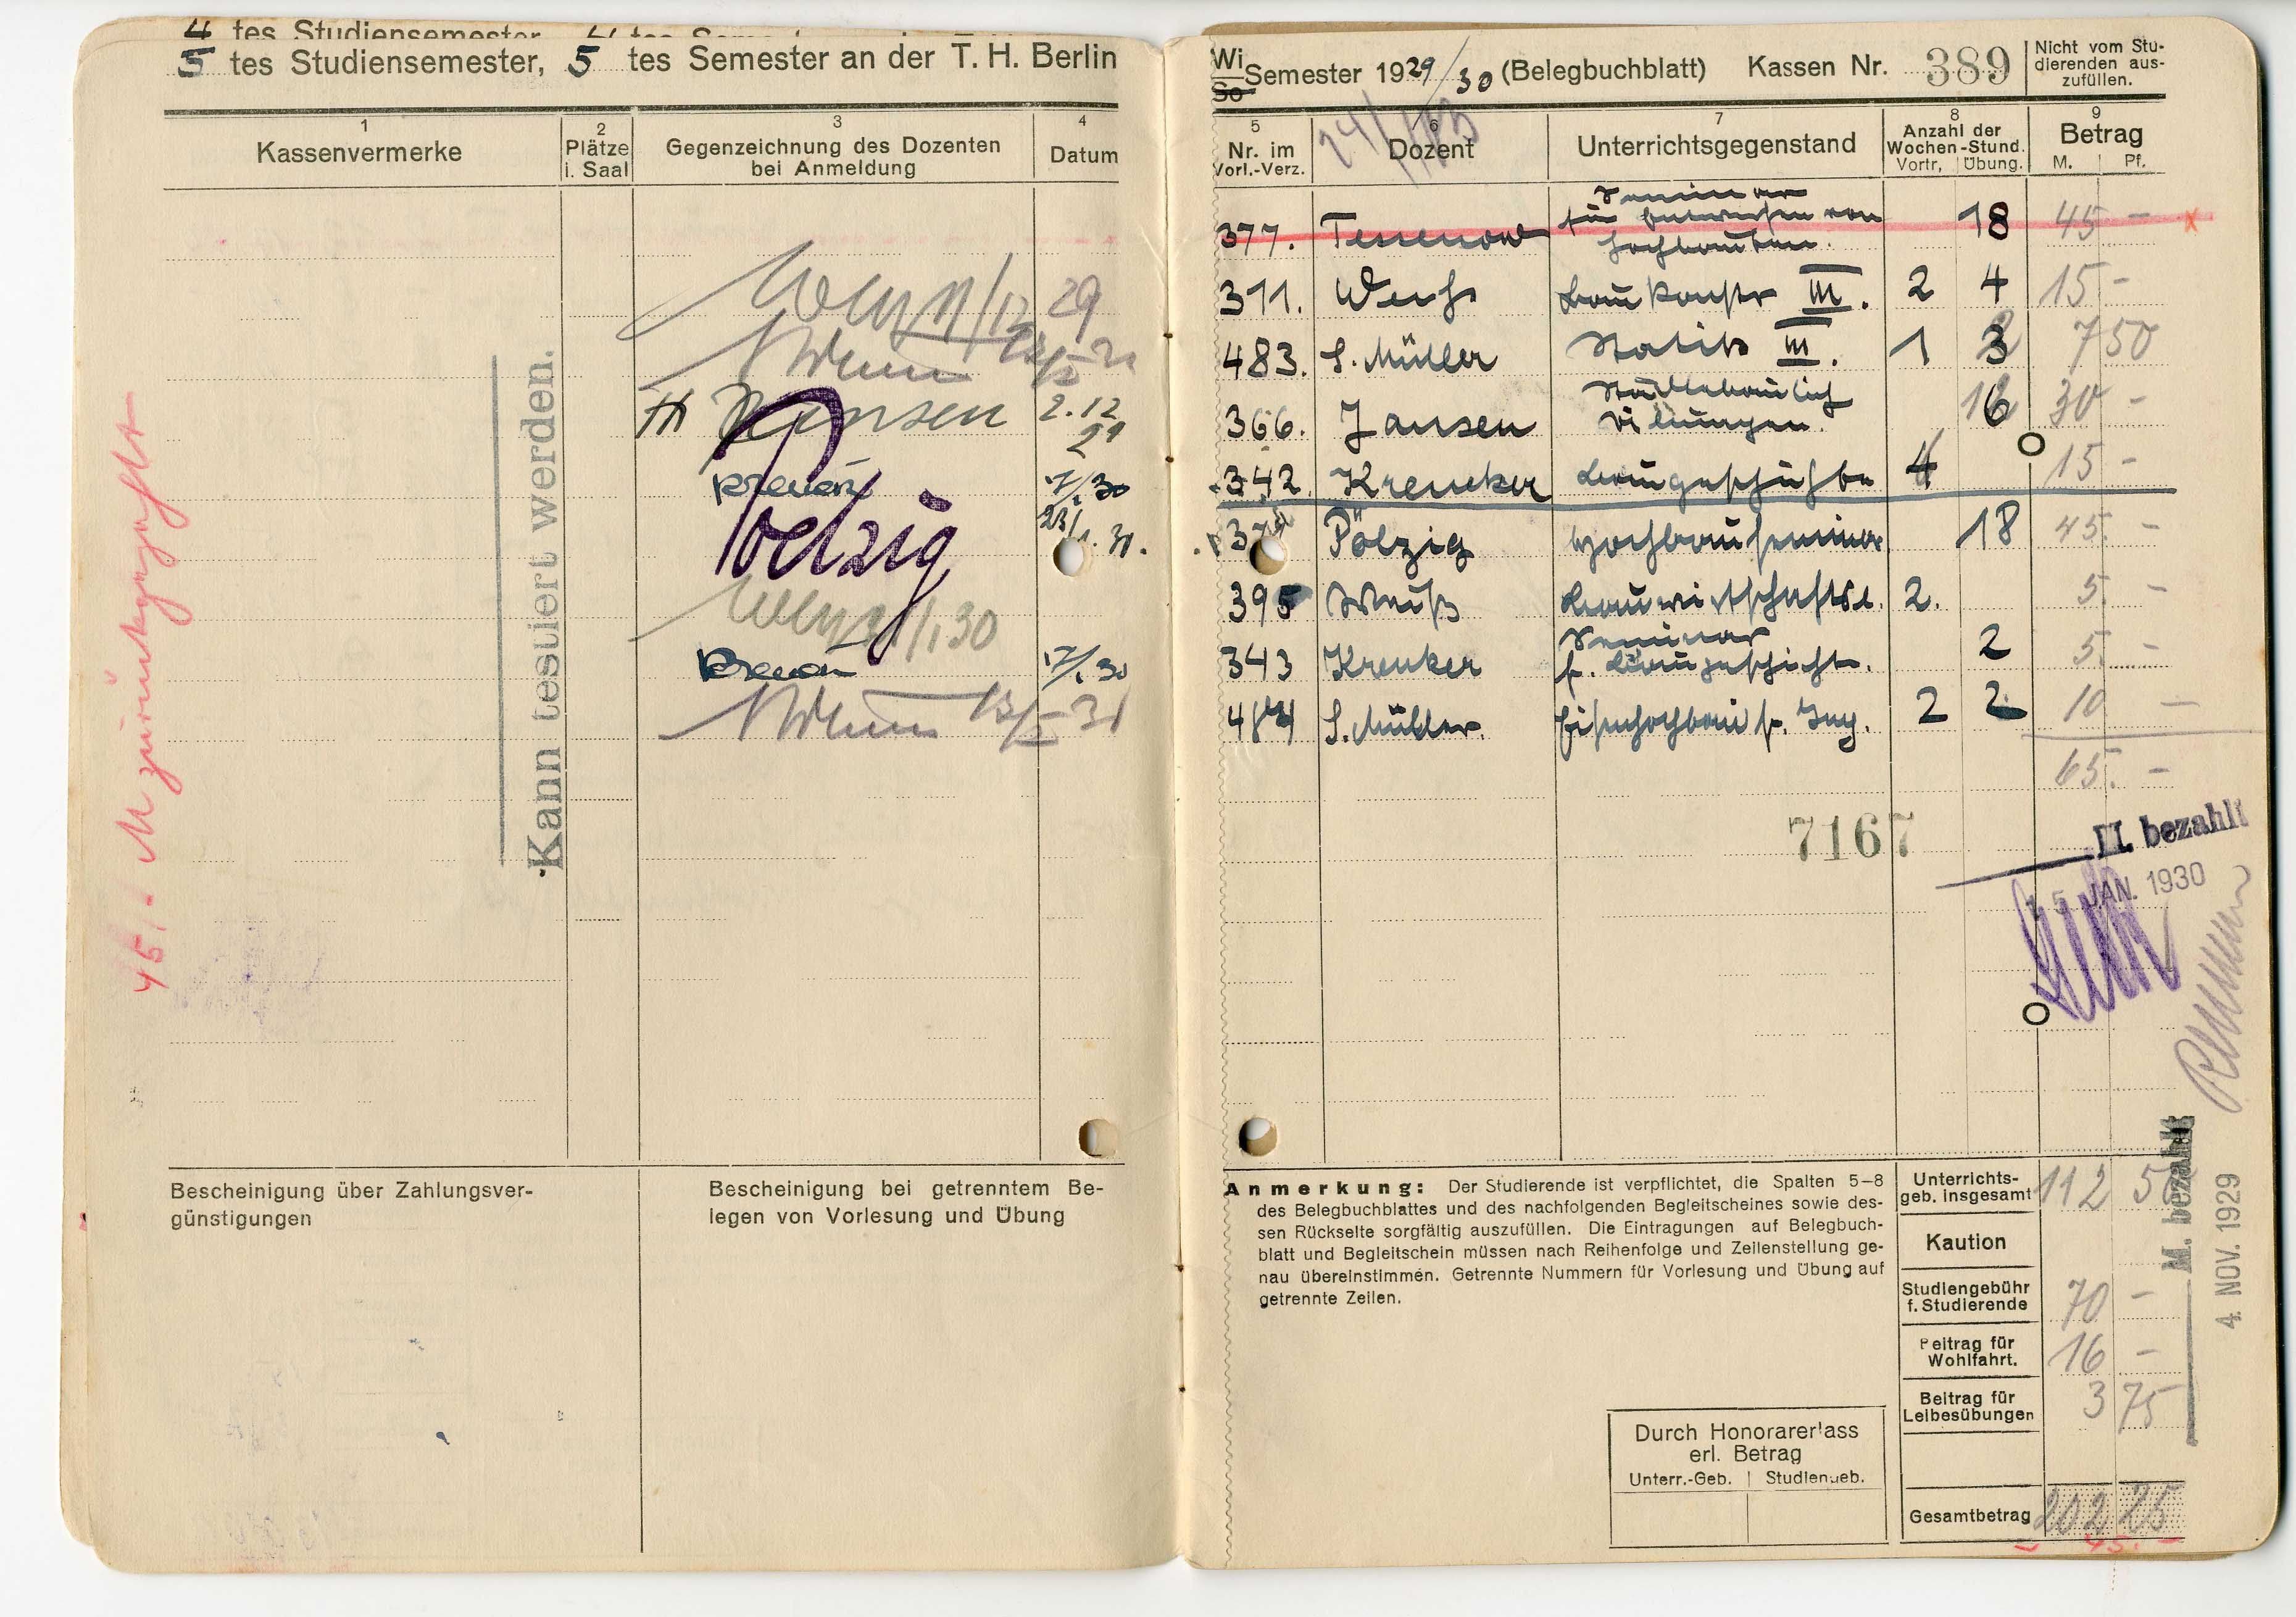 4 tes Studiensemester, 4 tes Semester
5 tes Studiensemester, 5 tes Semester an der T. H. Berlin
1
Kassenvermerke
2
Plätze
i. Saal
3
Gegenzeichnung des Dozenten
bei Anmeldung
4
Datum
29
H Jansen 2.12
29
Poelzig
7/1.30
23/1.30.
1/1.30
7/1.30
45,- M zurückgezahlt
Kann testiert werden.
Bescheinigung über Zahlungsver-
günstigungen
Bescheinigung bei getrenntem Be-
legen von Vorlesung und Übung
Wi
So Semester 1929/30 (Belegbuchblatt) Kassen Nr. 389
Nicht vom Stu-
dierenden aus-
zufüllen.
5
Nr. im
Vorl.-Verz.
6
Dozent
7
Unterrichtsgegenstand
8
Anzahl der
Wochen-Stund.
Vortr. Übung.
9
Betrag
M. Pf.
377. Tessenow Seminar für Entwerfen von Hochbauten. 18 45 -
311. Weiß Baukonstr III. 2 4 15 -
483. S. Müller Statik III. 1 3 7 50
366. Jansen Städtebaulich Übungen. 6 30 -
342 Krencker Baugeschichte 4 15 -
Pölzig Hochbauseminar 18 45. -
395 Weiß Bauwirtschaftsl. 2. 5. -
343 Krenker Seminar f. Baugeschichte. 2 5. -
484 S. Müller. Eisenhochbau f. Ing. 2 2 10 -
65. -
7167
II. bezahlt
JAN. 1930
M. bezahlt
4. NOV. 1929
Anmerkung: Der Studierende ist verpflichtet, die Spalten 5–8
des Belegbuchblattes und des nachfolgenden Begleitscheines sowie des-
sen Rückseite sorgfältig auszufüllen. Die Eintragungen auf Belegbuch-
blatt und Begleitschein müssen nach Reihenfolge und Zeilenstellung ge-
nau übereinstimmen. Getrennte Nummern für Vorlesung und Übung auf
getrennte Zeilen.
Unterrichts-
geb. insgesamt 112 50
Kaution
Studiengebühr
f. Studierende 70 -
Beitrag für
Wohlfahrt. 16 -
Beitrag für
Leibesübungen 3 75
Gesamtbetrag 202 25
45. -
Durch Honorarerlass
erl. Betrag
Unterr.-Geb. Studiengeb.